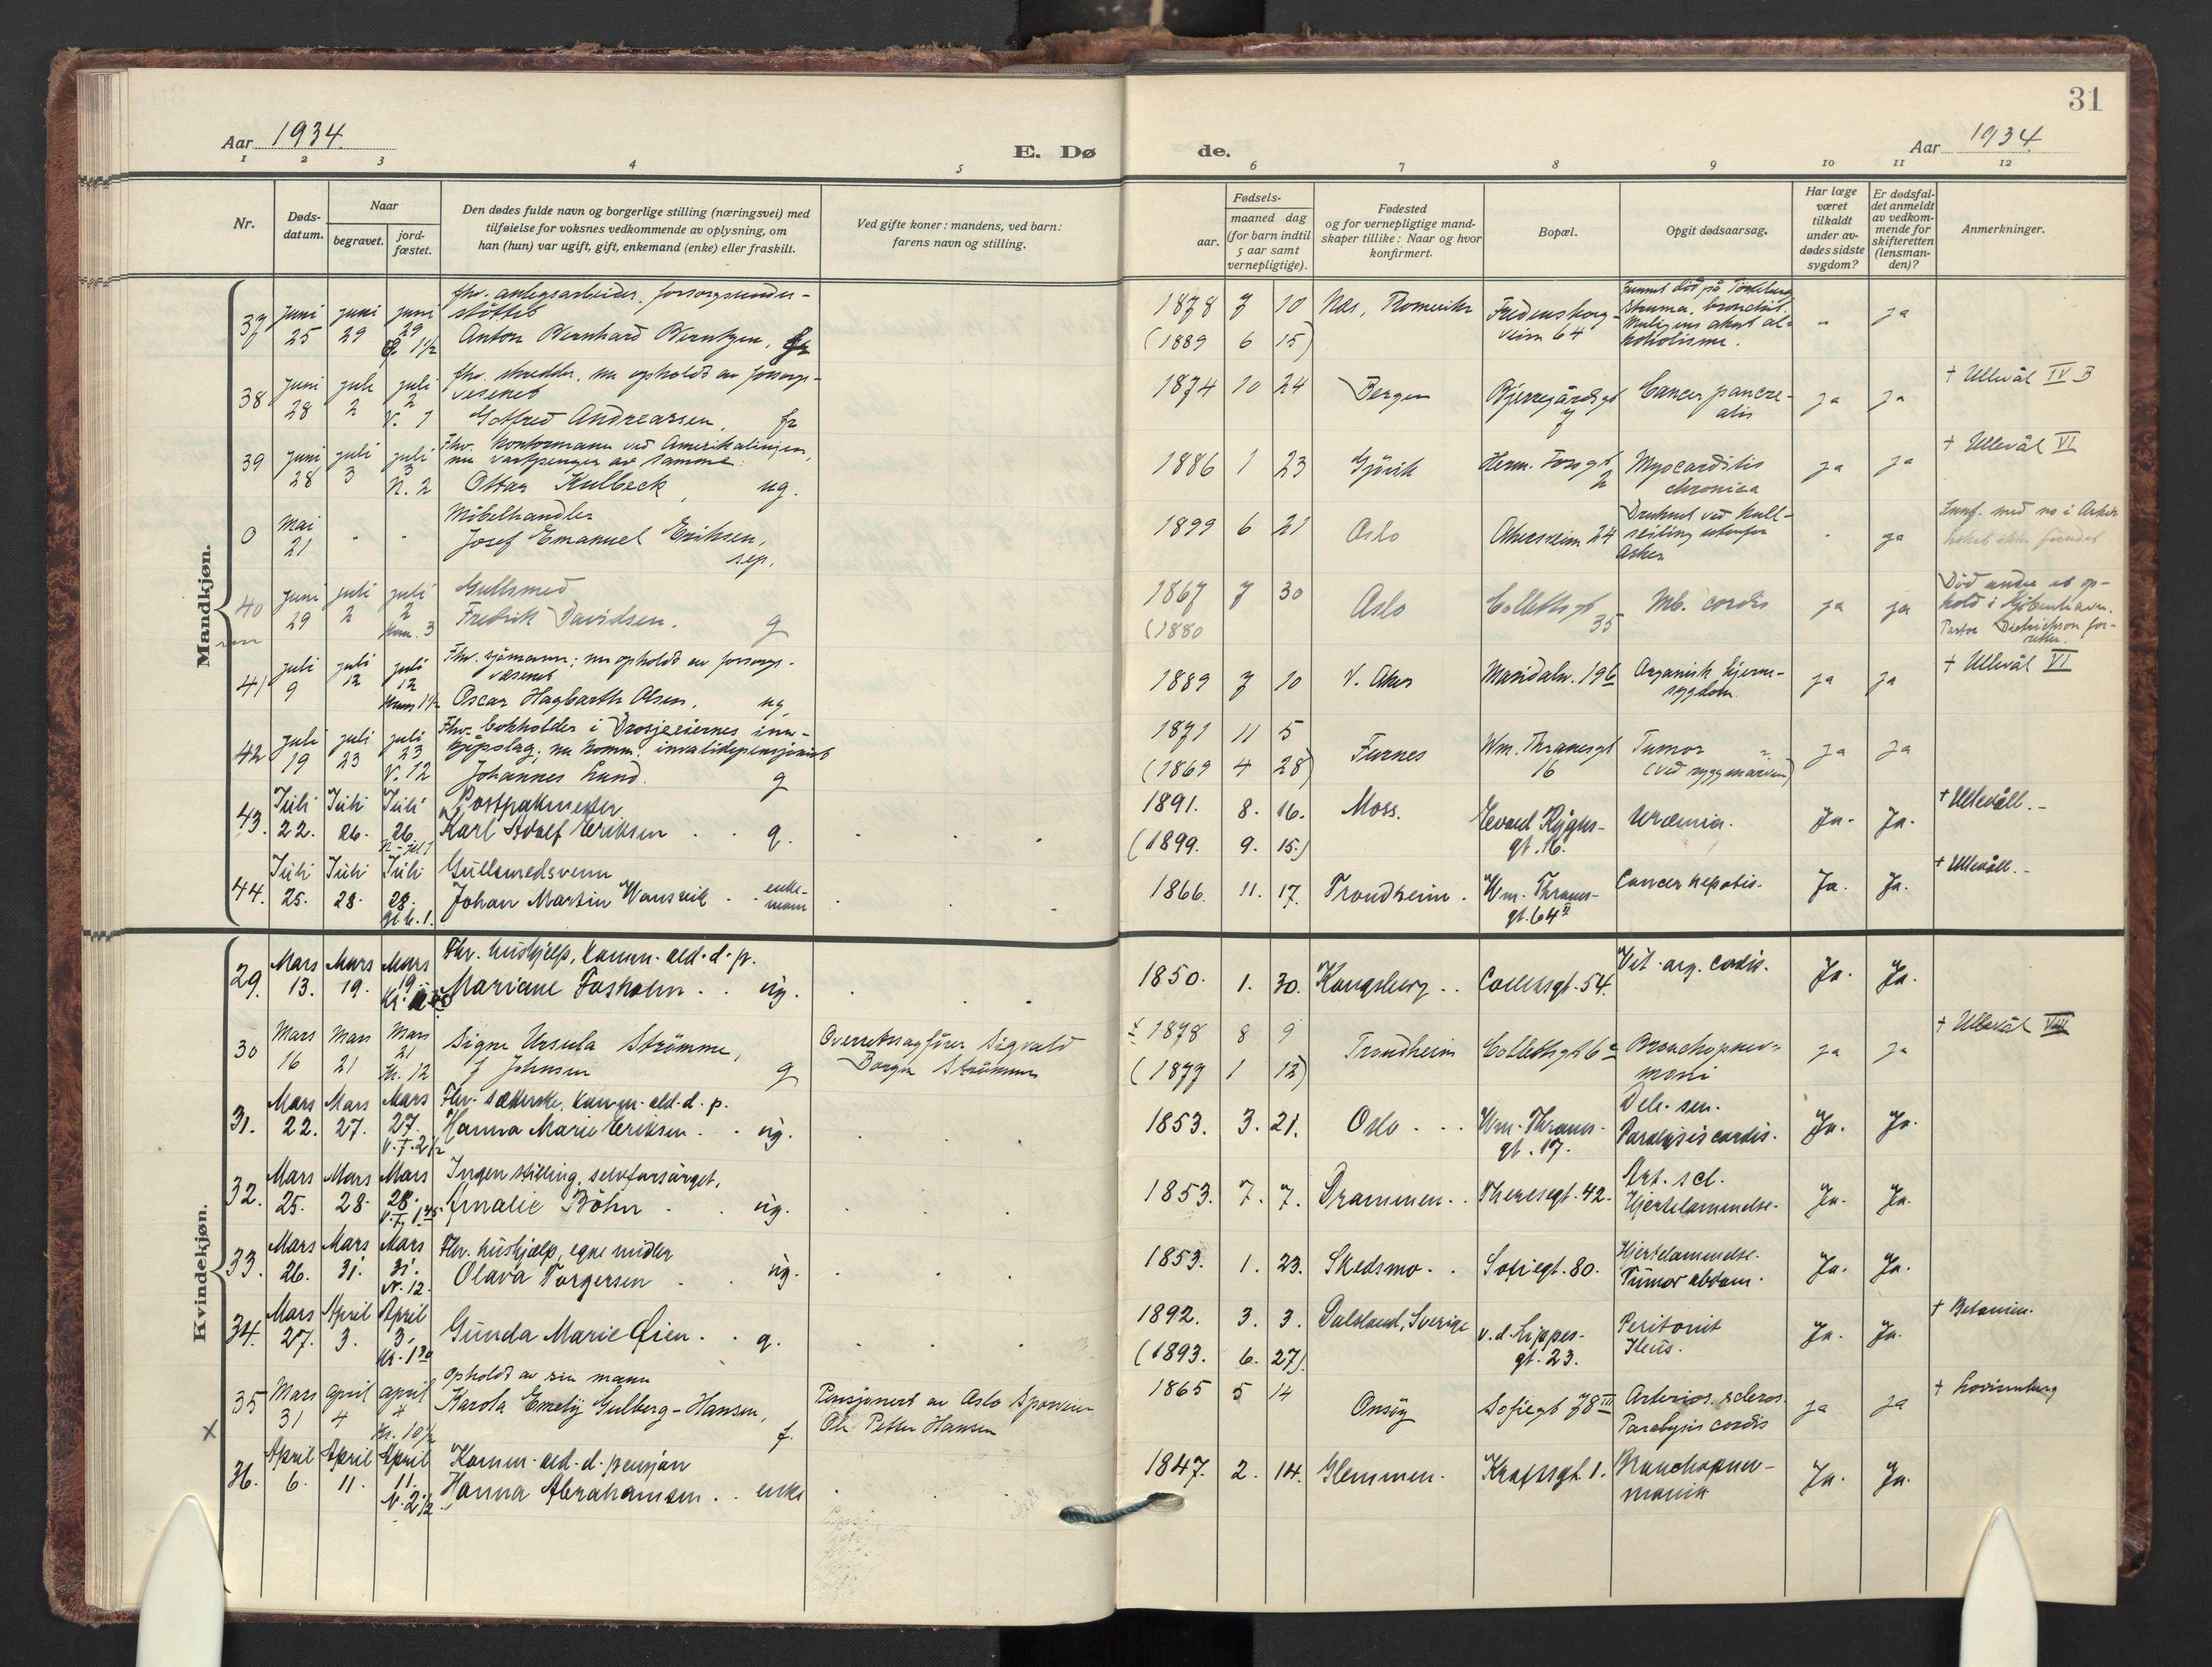 31
Aar 1934.
E. Dø
de.
Aar 1934.
1 2 3 4 5 6 7 8 9 10 11 12
Nr.
Døds-
datum.
Naar
begravet.
jord-
fæstet.
Den dødes fulde navn og borgerlige stilling (næringsvei) med
tilføielse for voksnes vedkommende av oplysning, om
han (hun) var ugift, gift, enkemand (enke) eller fraskilt.
Ved gifte koner: mandens, ved barn:
farens navn og stilling.
Fødsels-
aar.
maaned dag
(for barn indtil
5 aar samt
vernepligtige).
Fødested
og for vernepligtige mand-
skaper tillike: Naar og hvor
konfirmert.
Bopæl.
Opgit dødsaarsag.
Har læge
været
tilkaldt
under av-
dødes sidste
sygdom?
Er dødsfal-
det anmeldt
av vedkom-
mende for
skifteretten
(lensman-
den)?
Anmerkninger.
Mandkjøn.
37 juni 25 juni 29 juni 29
fhv. anlegsarbeider, forsorgsunder-
støttet
Anton Bernhard Berntzen,
1878 7 10 Nes, Romerike
(1889 6 15)
Fredensborg-
veien 64
Struma, bronchit.
ja
38 juni 28 juli 2 juli 2 V. 1
fhv. skredder, nu opholdt av forsorgs-
vesenet
Gotfred Andreassen, fr
1874 10 24 Bergen
Bjerregårdsgt
Cancer pancre-
atis
ja ja
+ Ullevål IV B
39 juni 28 juli 3 juli 3 N. 2
Fhv. kontormann ved Amerikalinjen,
nu vartpenger av samme.
Ottar Kulbeck, ug.
1886 1 23 Gjøvik
Herm. Fossgt 2
Myocarditis
chronica
ja ja
+ Ullevål VI
0 Mai 21 - -
Møbelhandler
Josef Emanuel Eriksen,
sep.
1899 6 21 Oslo
Akersveien 24
Druknet ved kull-
seiling utenfor
Asker
ja
40 juni 29 juli 2 juli 2
Gullsmed
Fredrik Davidsen. g
1867 7 30 Oslo
(1880
Collettsgt 35
Mb. cordis
ja ja
Død under et op-
hold i Kjøbenhavn.
41 juli 9 juli 12 juli 12
Fhv. sjømann; nu opholdt av forsorgs-
vesenet
Oscar Hagbarth Olsen, ug
1889 7 10 V. Aker
Maridalsv. 196
Organisk hjerne-
sygdom
ja ja
+ Ullevål VI
42 juli 19 juli 23 juli 23 V. 12
Fhv. bokholder i Drosjeeiernes inn-
kjøpslag; nu komm. invalidepensjonist
Johannes Lund. g
1871 11 5 Furnes
(1869 4 28)
Wm. Thranesgt
16
Tumor
(ved ryggmarven)
ja ja
43. Juli 22. Juli 26. Juli 26.
Postpakmester
Karl Adolf Eriksen . . g.
1891. 8. 16. Moss.
(1899. 9. 15.)
Edvard
gt. 16.
Uræmia.
Ja. Ja.
+ Ullevåll.-
44. Juli 25. Juli 28. Juli 28.
Gullsmedsvenn
Johan Martin Wansvik . . enke-
mann
1866. 11. 17. Trondheim.
Wm. Thranes-
gt. 64
Cancer hepatis.
Ja. Ja.
+ Ullevåll.-
Kvindekjøn.
29. Mars 13. Mars 19. Mars 19.
Fhv. hushjelp, komm. ald. d. p.
Mariane Fosholm . . ug.
1850. 1. 30. Kongsberg . .
Colletsgt. 54.
Vit. org. cordis.
Ja. Ja.
30 Mars 16 Mars 21 Mars 21 Kr. 12
Signe Ursula Strømme,
f Johnsen g
Overrettssagfører Sigvald
Borger Strømme
1878 8 9 Trondheim
(1877 1 12)
Collettsgt 6
Bronchopneu-
moni
ja ja
+ Ullevål VIII
31. Mars 22. Mars 27. Mars 27.
Fhv. komm. ald. d. p.
Hanna Marie Eriksen . . ug.
1853. 3. 21. Oslo . . .
Wm. Thranes-
gt. 17.
Dele. sen.
Paralysis cordis.
Ja. Ja.
32. Mars 25. Mars 28. Mars 28.
Ingen stilling, selvforsørget,
Amalie Bøhn . . ug.
1853. 7. 7. Drammen . .
Theresegt. 42.
Art. scl.
Hjertelammelse.
Ja. Ja.
33. Mars 26. Mars 31. Mars 31. N. 12.
Fhv. hushjælp, egne midler
Olava Torgersen . . ug.
1853. 1. 23. Skedsmo . .
Sofiegt. 80.
Hjertelammelse.
Tumor abdom.
Ja. Ja.
34. Mars 27. April 3. April 3.
Gunda Marie Øien . . g.
1892. 3. 3. Dalsland, Sverige
(1893. 6. 27).
v. d. Lippes-
gt. 23.
Peritonit
Ileus.
Ja. Ja.
+ Betanien.
35 Mars 31 april 4 april 4 Kr. 10½
×
opholdt av sin mann
Karola Emely Gulberg-Hansen, f.
Pensjonert av Oslo Sporveier
Ole Petter Hansen
1865 5 14 Onsøy
Sofiegt 78 III
Arterios. scleros.
Paralysis cordis
ja ja
+ Lovisenberg
36. April 6. April 11. April 11. N. 2½
Komm. ald. d. pensjon
Hanna Abrahamsen . . enke
1847. 2. 14. Glemmen.
Kraftsgt. 1.
Bronchopneu-
monia
Ja. Ja.